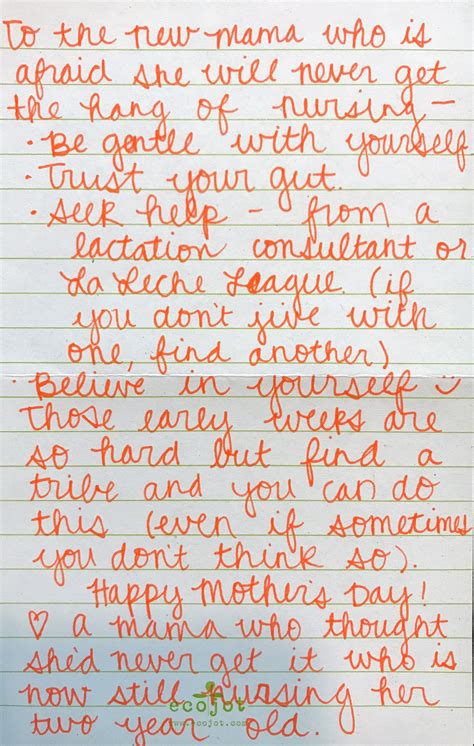 To the new mama who is
afraid she will never get
the hang of nursing —
· Be gentle with yourself
· Trust your gut.
· Seek help - from a
lactation consultant or
La Leche League. (if
you don't jive with
one, find another)
· Believe in yourself
Those early weeks are
so hard but find a
tribe and you can do
this (even if sometimes
you don't think so).
Happy Mother's Day!
♡ a mama who thought
she'd never get it who is
now still nursing her
two year old.
ecojot
www.ecojot.com